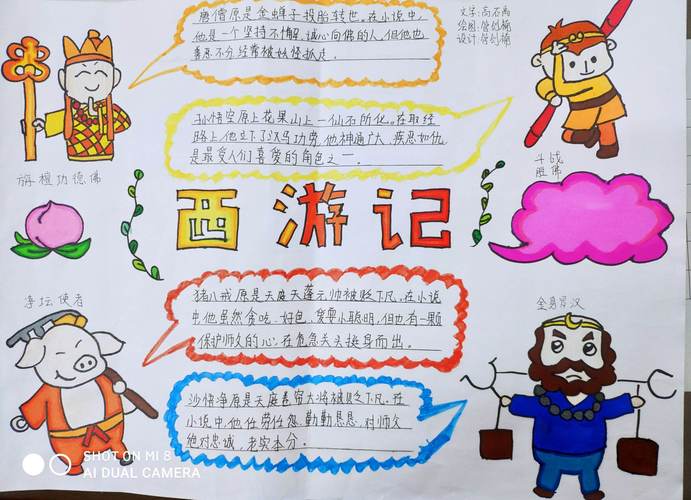 唐僧原是金蝉子投胎转世。在小说中,
他是一个坚持不懈,诚心向佛的人,但他也
善恶不分经常被妖怪抓走。
文字:高石雨
绘图:
设计:
旃檀功德佛
斗战
胜佛
孙悟空原是花果山上一仙石所化。在取经
路上,他立下了汗马功劳,他神通广大,疾恶如仇,
是最受人们喜爱的角色之一。
西游记
净坛使者
金身罗汉
猪八戒原是天庭天蓬元帅被贬下凡,在小说
中,他虽然贪吃、好色、爱耍小聪明,但也有一颗
保护师父的心,在危急关头挺身而出。
沙悟净原是天庭卷帘大将被贬下凡。在
小说中,他任劳任怨、勤勤恳恳,对师父
绝对忠诚,老实本分。
SHOT ON MI 8
AI DUAL CAMERA